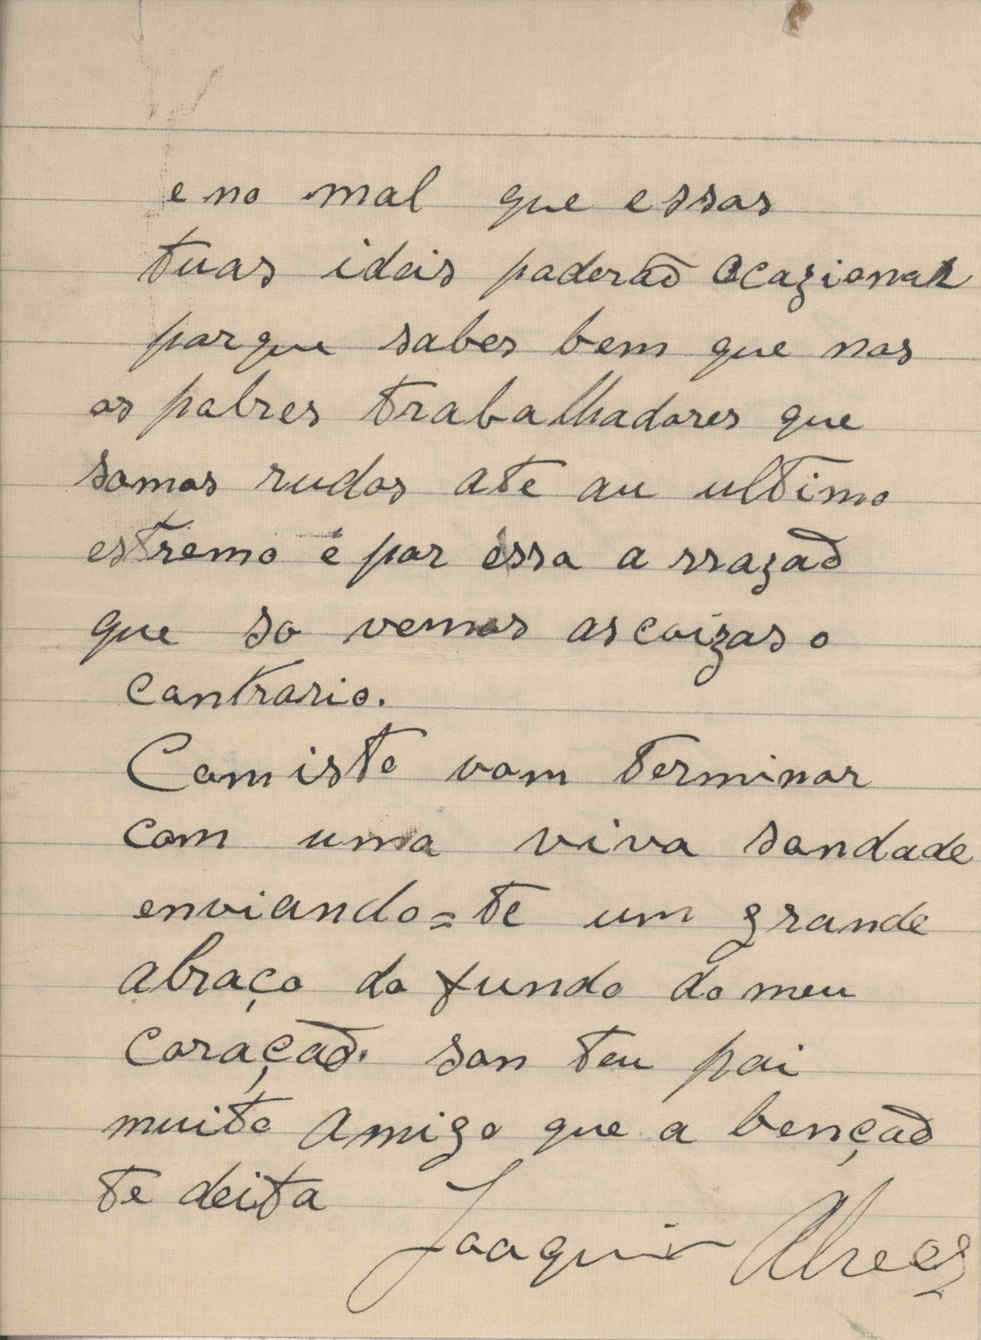 e no mal que essas
tuas ideis poderaõ Ocazionar
porque sabes bem que nos
os pobres trabalhadores que
somos rudos ate au ultimo
estremo é por éssa a rrazaõ
que so vemos as coizas o
contrario.
Com isto vom terminar
com uma viva sandade
enviando=te um grande
abraço do fundo do meu
Coraçaõ. son teu pai
muito amigo que a bençaõ
te deita
Joaquim Alves